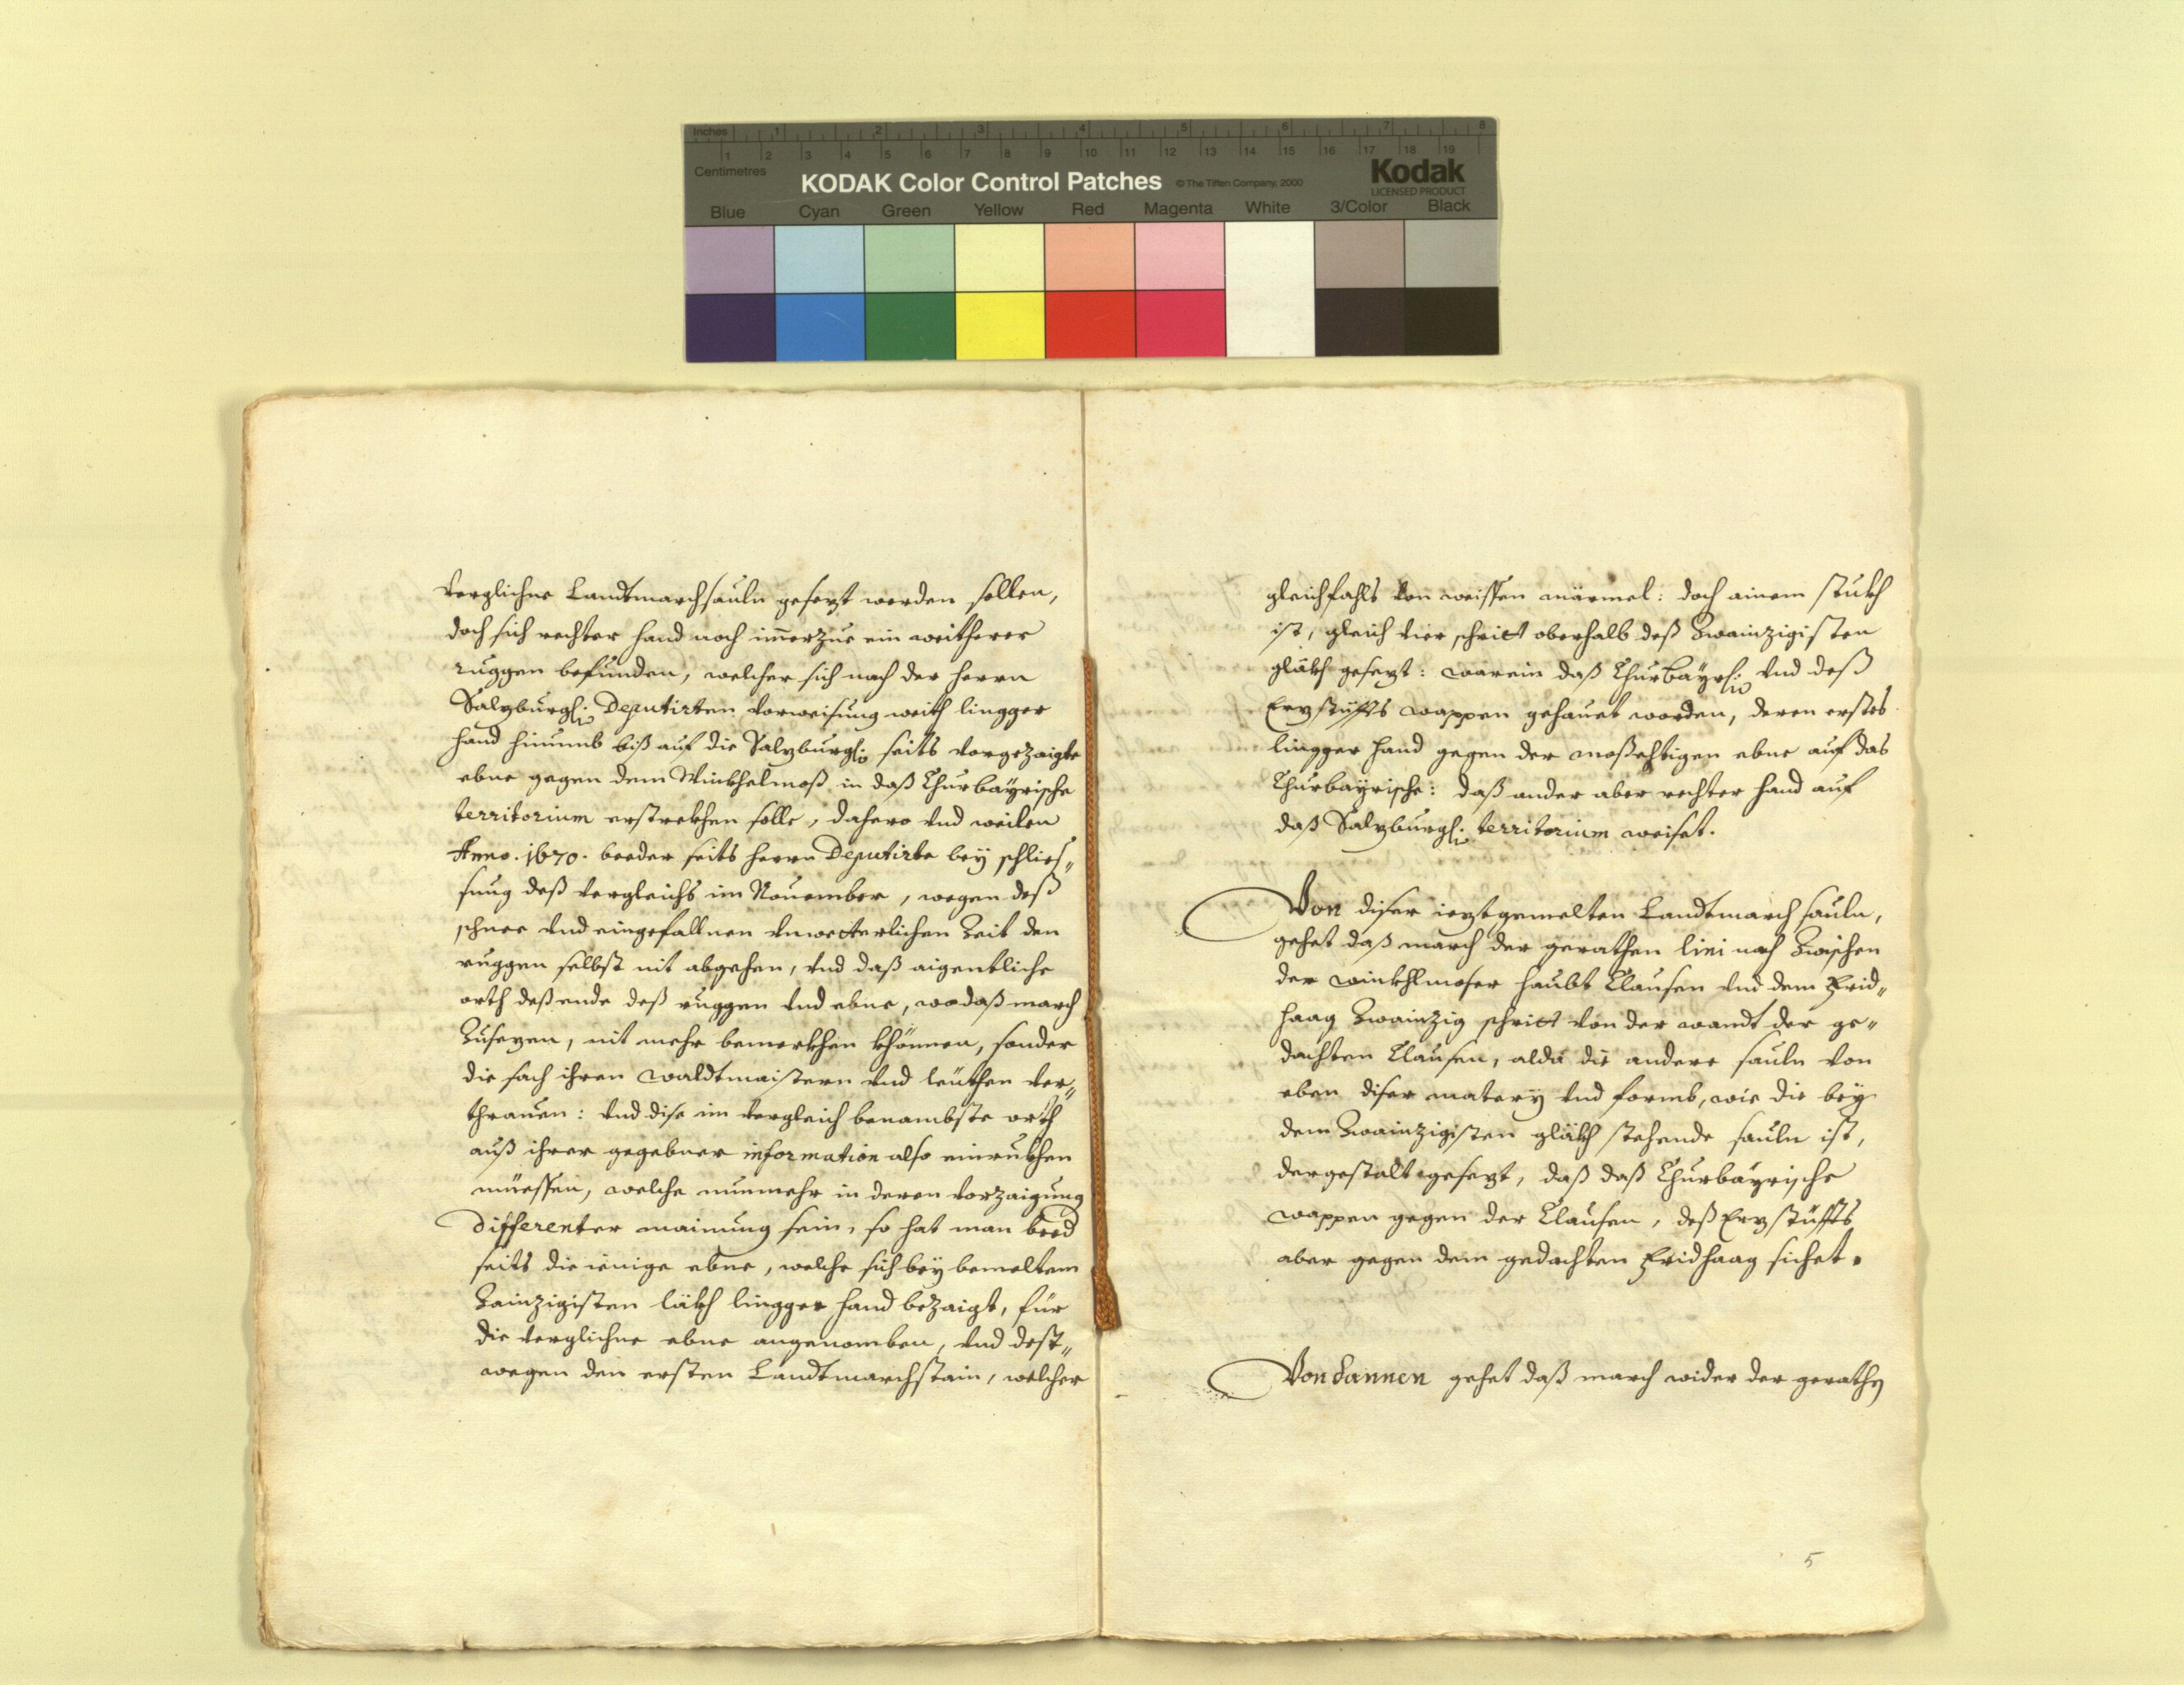 Inches 1 2 3 4 5 6 7 8
1 2 3 4 5 6 7 8 9 10 11 12 13 14 15 16 17 18 19
Centimetres
KODAK Color Control Patches © The Tiffen Company, 2000 Kodak
LICENSED PRODUCT
Blue Cyan Green Yellow Red Magenta White 3/Color Black
verglichne Landtmarchsauln gesezt werden sollen,
doch sich rechter hand noch im̅erzue ein weitherer
ruggen befunden, welcher sich nach der herrn
Salzburgl: Deputirten vorweisung weith lingger
hand hinumb biß auf die Salzburgl: seits vorgezaigte
ebne gegen dem Winkhelmoß in daß Churbayrische
territorium erstrekhen solle, dahero vnd weilen
Anno. 1670. beeder seits herrn Deputirte bey schlies„
sung deß vergleichs im Nouember, wegen deß
schnee vnd eingefallnen vnwetterlichen Zeit den
ruggen selbst nit abgehen, vnd daß aigentliche
orth deß ende deß ruggen vnd ebne, wo daß march
Zusezen, nit mehr bemerkhen khönnen, sonder
die sach ihren waldtmaistern vnd leüthen ver„
thrauen: vnd dise im vergleich benambste orth
auß ihrer gegebner information also einrukhen
müessen, welche nunmehr in deren vorzaigung
differenter mainung sein, so hat man beed
seits die ienige ebne, welche sich bey bemeltem
Zainzigisten läkh lingger hand bezaigt, für
die verglichne ebne angenomben, vnd dest„
wegen den ersten Landtmarchstain, welcher
gleichfahls von weissen märmel: doch ainem stukh
ist, gleich vier schritt oberhalb deß Zwainzigisten
gläkh gesezt: warein daß Churbayrl: vnd deß
Erzstüffts wappen gehauet worden, deren erstes
lingger hand gegen der moßechtigen ebne auf das
Churbayrische: daß ander aber rechter hand auf
daß Salzburgl: territorium weiset.
Von diser iezt gemelten Landtmarch sauln,
gehet daß march der gerathen lini nach Zwischen
der winkhlmoser haubt Clausen vnd dem Frid„
haag Zwainzig schritt von der wandt der ge„
dachten Clausen, alda die andere sauln von
eben diser matery vnd formb, wie die bey
dem Zwainzigisten gläkh stehende sauln ist,
dergestalt gesezt, daß daß Churbayrische
wappen gegen der Clausen, deß Erzstüffts
aber gegen dem gedachten Fridhaag sichet.
Von dannen gehet daß march wider der gerathen
5